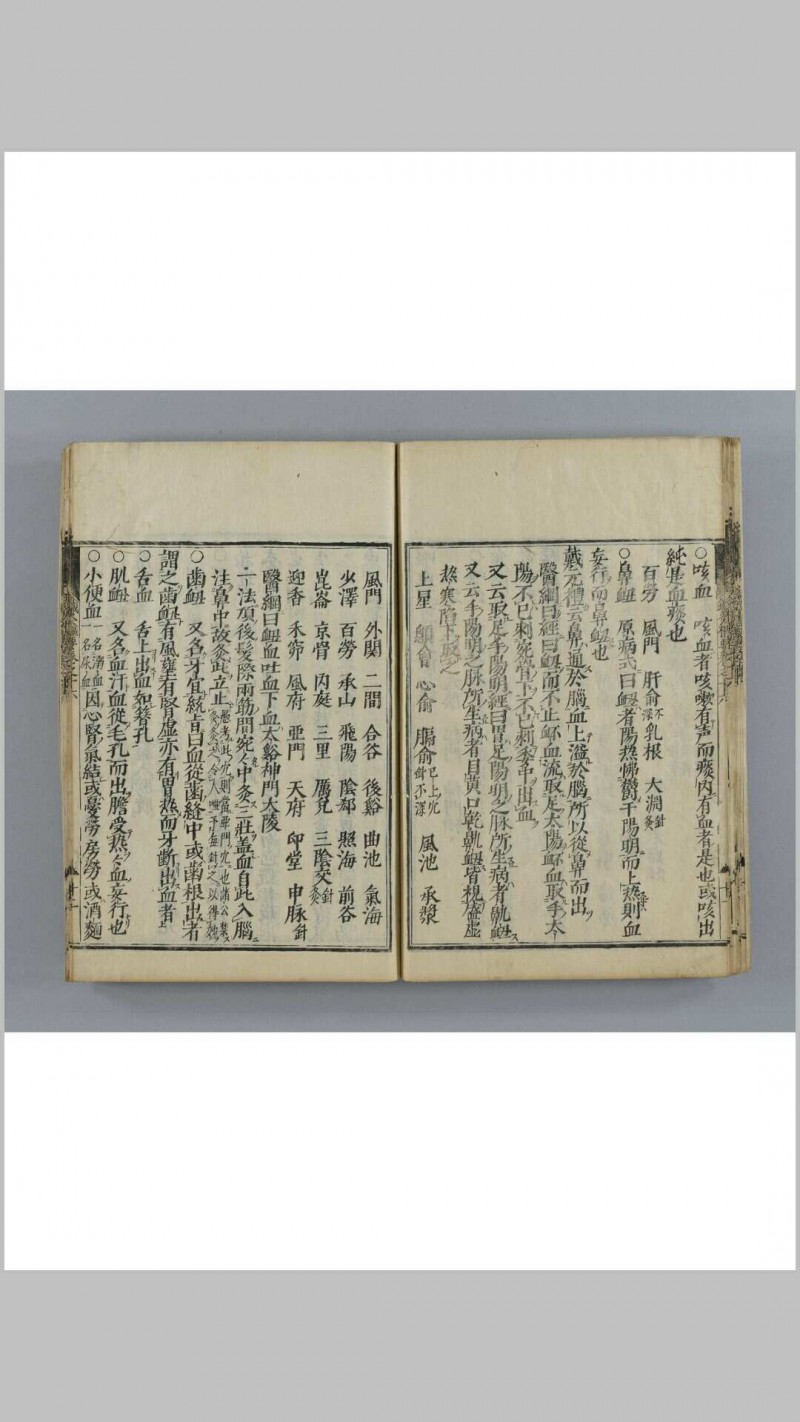 ○咳血 咳血者咳嗽有声而痰内有血者是也或咳出
純是血痰也
百労 風門 肝俞不深 乳根 大淵針灸
○鼻衄 原病式曰衄者陽熱怫鬱于陽明而上熱則血
妄行而鼻衄也
戴元禮云鼻通於腦血上溢於腦所以從鼻而出
醫綱曰經曰衄而不止衃血流取足太陽衃血取手太
陽不已刺宛骨下不已刺委中出血
又云取足手陽明經曰胃足陽明之脉所生病者鼽衄
又云手陽明之脉所生病者目黄口乾鼽衄皆視盛虚
熱寒陷下取之
上星 顖會 心俞 膈俞已上穴針不深 風池 承漿
風門 外関 二間 合谷 後谿 曲池 氣海
少澤 百労 承山 飛陽 陰郄 照海 前谷
崑崙 京骨 内庭 三里 厲兌 三陰交針灸
迎香 禾窌 風府 亜門 天府 印堂 申脉針
醫綱曰衄血吐血下血太谿神門大陵
一法項後髮際兩筋間宛々中灸三壮盖血自此入腦
注鼻中故灸此立止
○齒衄 又名牙宣統旨曰血從齒縫中或齒根出者
謂之齒衄有風壅有腎虚亦有胃熱而牙斷出血者
○舌血 舌上出血如簪孔
○肌衄 又名血汗血從毛孔而出膽受熱々血妄行也
○小便血一名溺血一名尿血因心腎氣結或憂労房労或酒麵